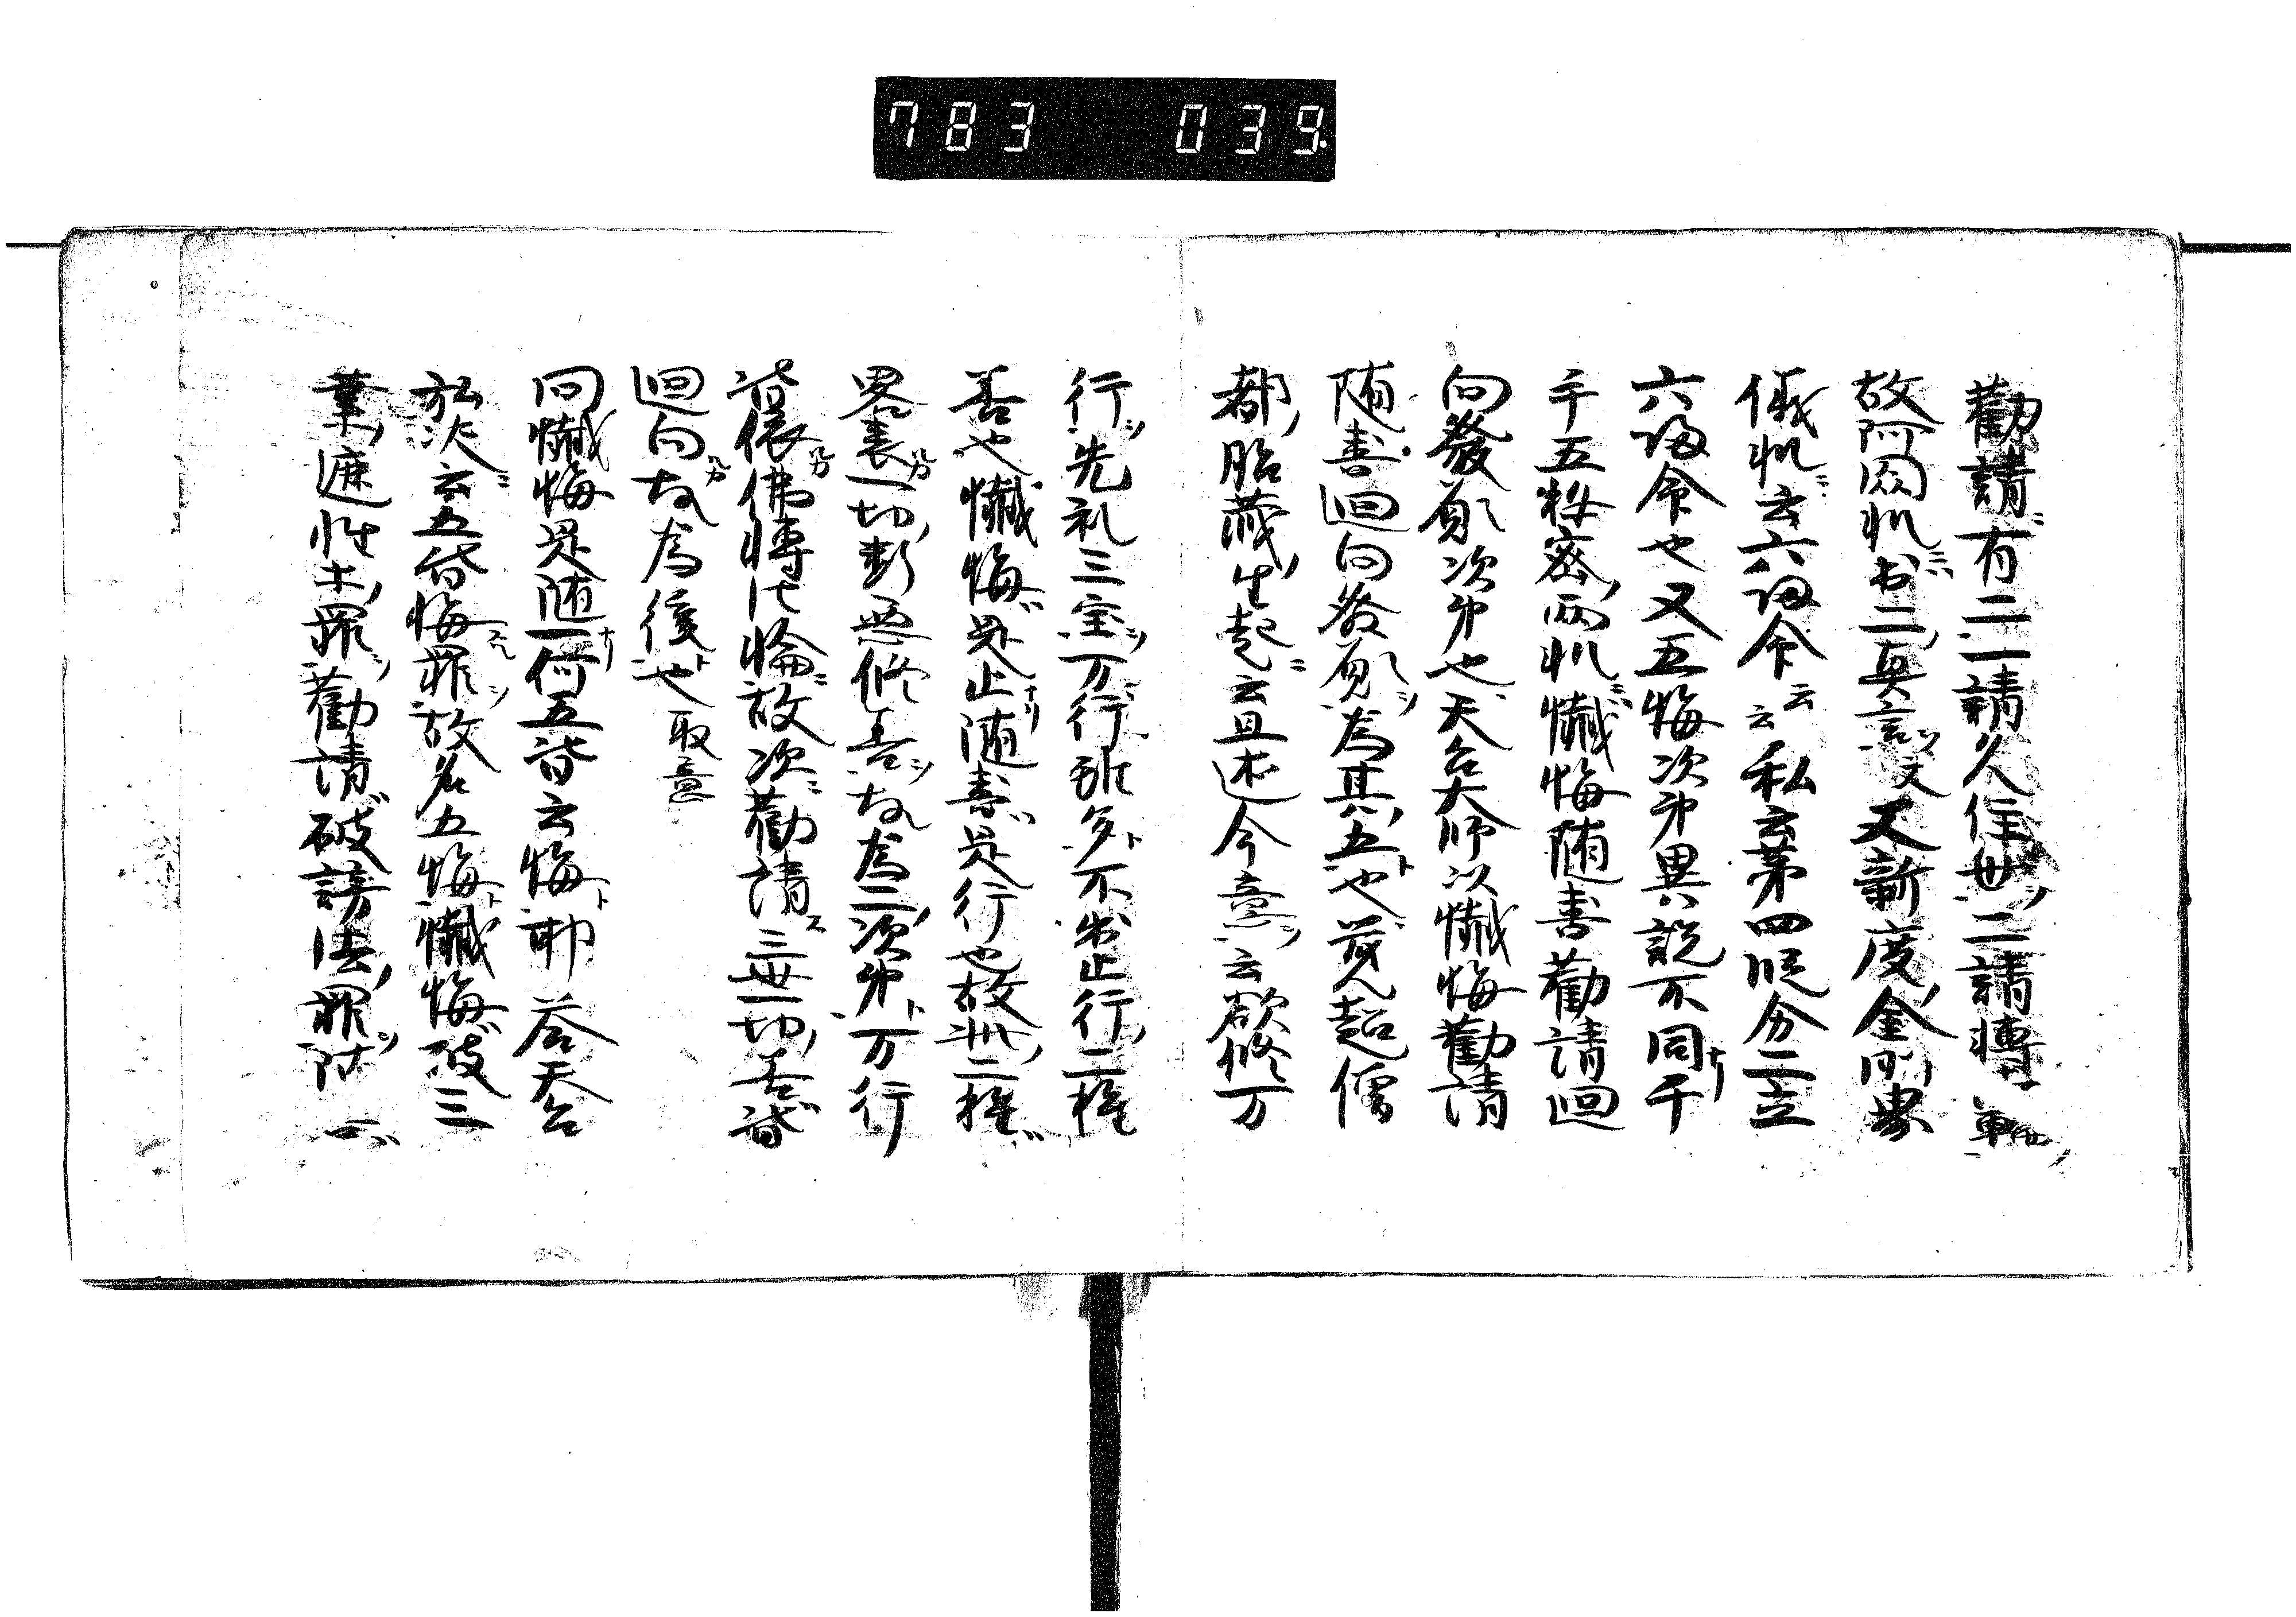 783 039
勸請有二一請久住世二請轉
故阿闍梨出二真言文又新度金剛界
儀軌云六誦今云云私云第四段分二立
六誦今也又五悔次第異說不同千
手五秘密兩軌懺悔隨喜勸請迴
向發願次第也天台大師以懺悔勸請
隨喜迴向發願為其五也覺超僧
都胎藏生起云且述今意云欲修万
行先礼三宝万行雖多不出止行二種
善也懺悔是止隨喜是行也故此二種
畧表一切断惡修善故為二次第万行
皆依佛轉法輪故次勸請三世一切善皆
迴向故為後也取意
問懺悔是随一何五皆云悔耶荅天台
於次云五皆悔罪故名五悔懺悔破三
業遮性土罪勸請破謗法罪